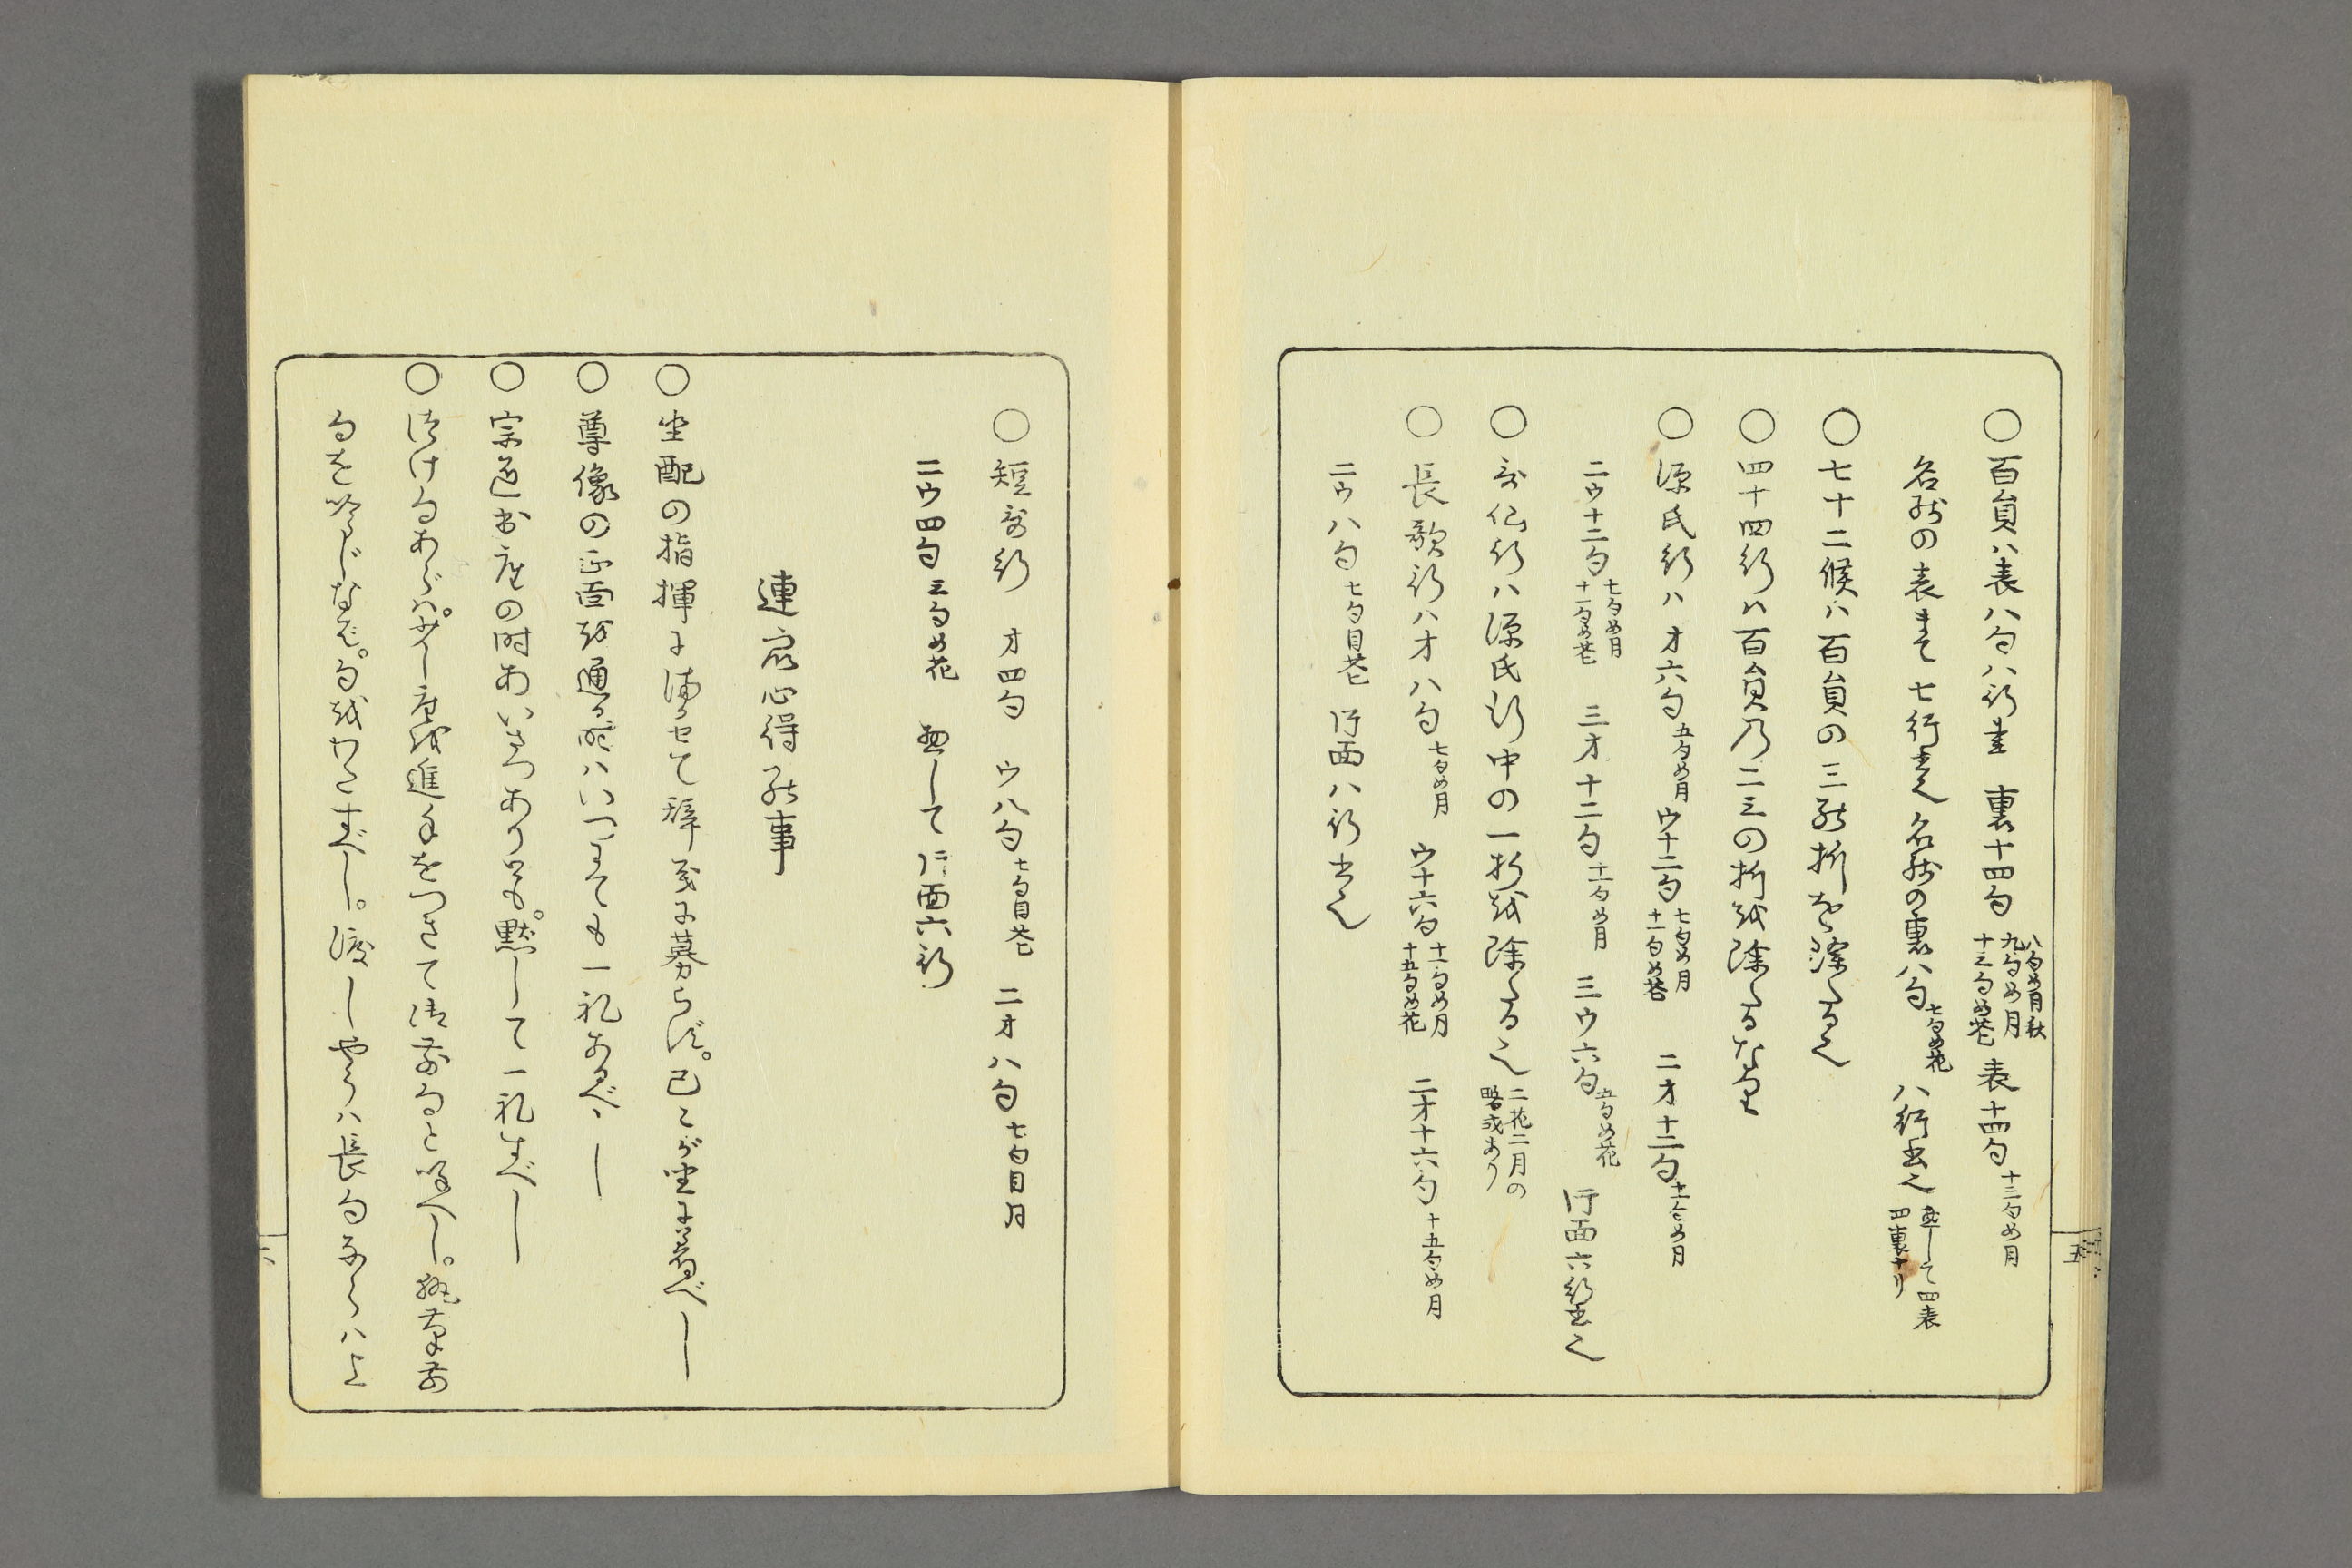 ○百員ハ表八句八行書 裏十四句 八句め月秋 九句め月 十三句め花 表十四句 十三句め月
名残の表まて七行書也 名残の裏八句 七句め花 八行書也 惣して四表四裏ナリ
○七十二候ハ百員の三の折を除くる也
○四十四行ハ百員乃二三の折越除くるなり
○源氏行ハ オ六句 五句め月 ウ十二句 七句め月 十一句め花 二オ十二句 十一句め月
二ウ十二句 七句め月 十一句め花 三オ十二句 十一句め月 三ウ六句 五句め花 行面六行書也
○歌仙行ハ源氏行中の一折越除くる也 二花二月の略式あり
○長歌行ハオ八句 七句め月 ウ十六句 十一句め月 十五句め花 二オ十六句 十五句め月
二ウ八句 七句目花 行面八行書也
五
○短歌行 オ四句 ウ八句 七句目花 二オ八句 七句目月
二ウ四句 三句め花 惣して行面六行
連衆心得の事
○坐配の指揮に満かセて辞義に募らず。己こが坐に着べし
○尊像の正面越通る時ハいつまても一礼あるべし
○宗匠出座の時あいさつありとも。黙して一礼すべし
○付け句あらバ。少し座越進ミ手をつきて付前句と唱べし。執筆前
句を吟じなバ。句越打こすべし。渡しやうハ長句ならハ上
六